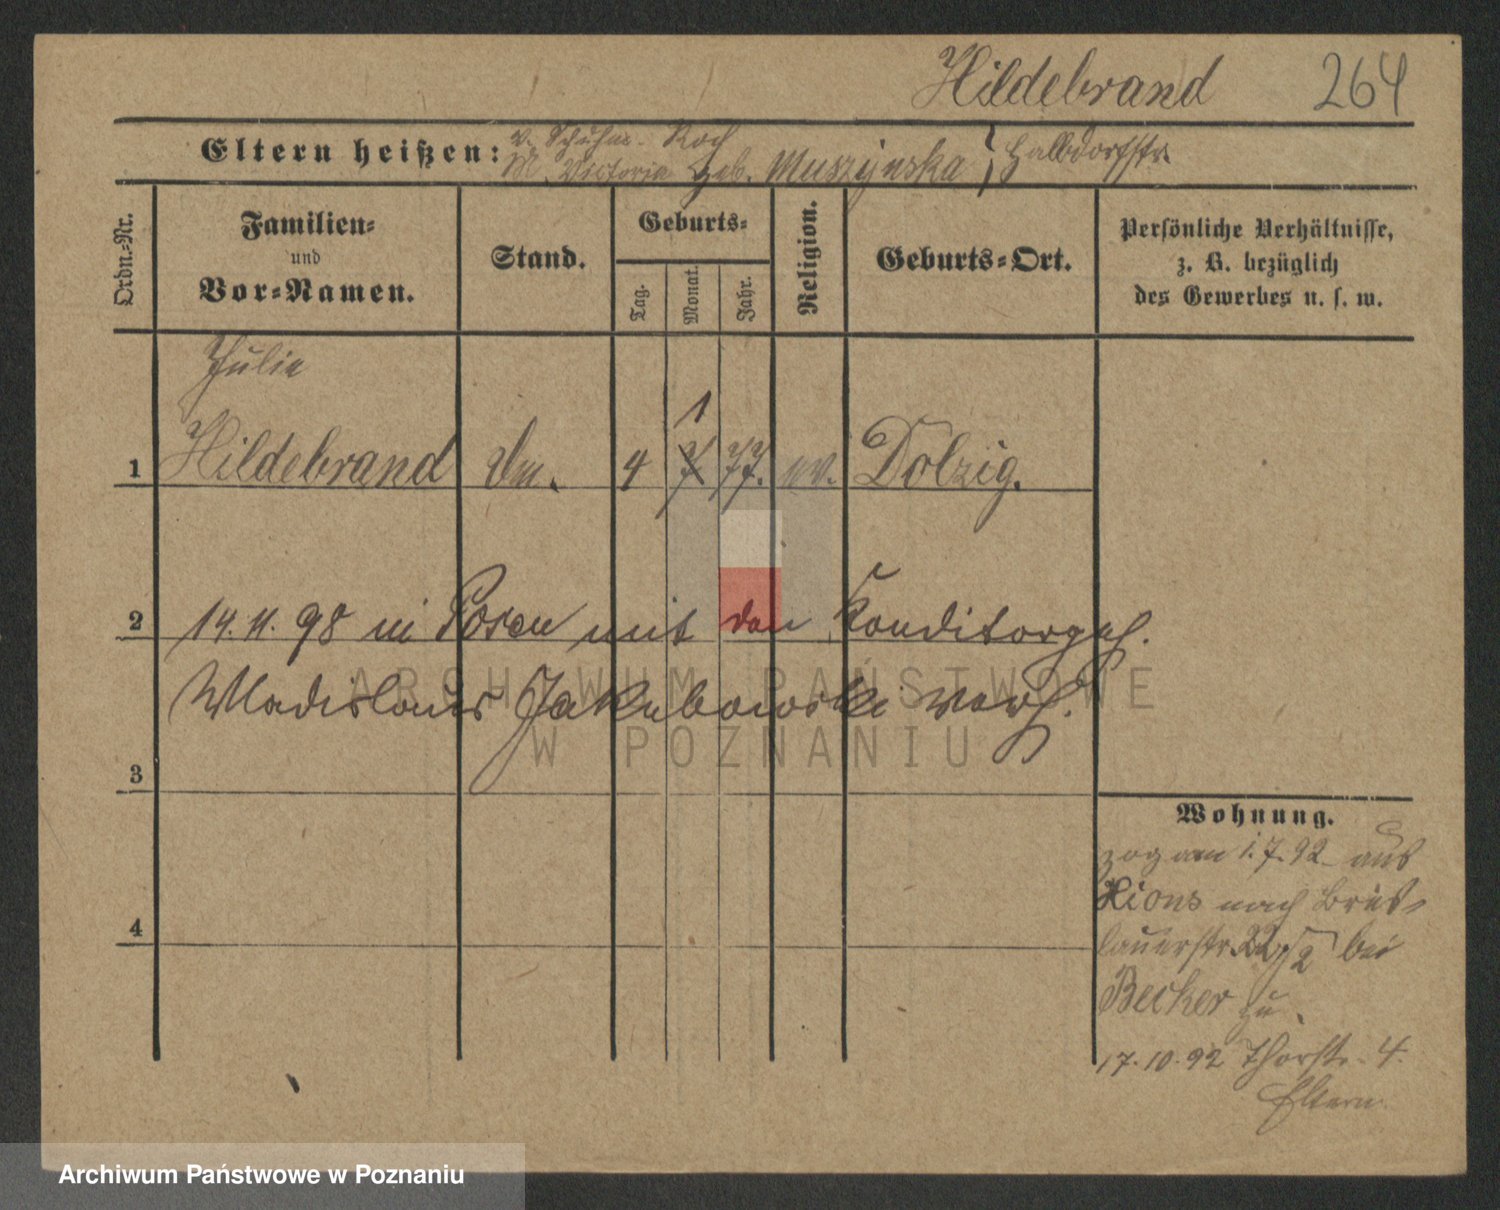 Hildebrand 264
Eltern heißen:
V. Schuhm. Koch
M. Victoria geb. Muszynska } Halbdorfstr.
Ordn.-Nr.
Familien-
und
Vor-Namen.
Stand.
Geburts-
Tag.
Monat.
Jahr.
Religion.
Geburts-Ort.
Persönliche Verhältnisse,
z. B. bezüglich
des Gewerbes u. s. w.
Julie
1
1 Hildebrand 4 7 77. ev. Dolzig.
2 14. 11. 98 in Posen mit dem Konditorgeh.
Wladislaus Jakubowski verh.
3
4
Wohnung.
zog am 1.7.92 aus
Xions nach Bres-
lauerstr. 22/2 bei
Becker zu.
17.10.92 Thorstr. 4.
Eltern.
ARCHIWUM PAŃSTWOWE
W POZNANIU
Archiwum Państwowe w Poznaniu